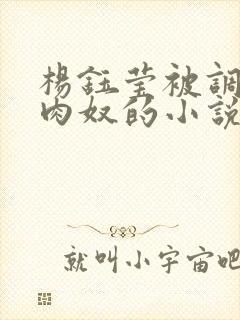 楊鈺莹被調
肉奴的小說
就叫小宇宙吧